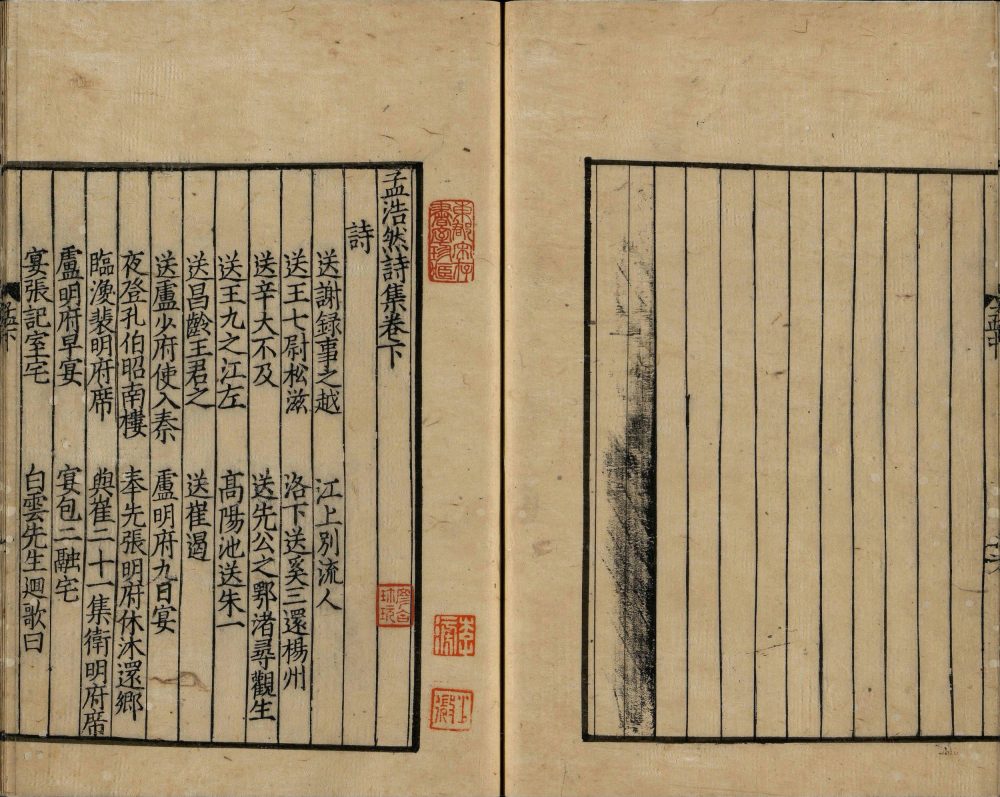 孟浩然詩集卷下
詩
送謝録事之越　江上別流人
送王七尉松滋　洛下送奚三還楊州
送辛大不及　送先公之鄂渚尋觀生
送王九之江左　髙陽池送朱一
送昌齡王君之　送崔遏
送盧少府使入秦　盧明府九日宴
夜登孔伯昭南樓　奉先張明府休沐還鄉
臨渙裴明府席　與崔二十一集衛明府席
盧明府早宴　宴包二融宅
宴張記室宅　白雲先生迥歌曰
孟下